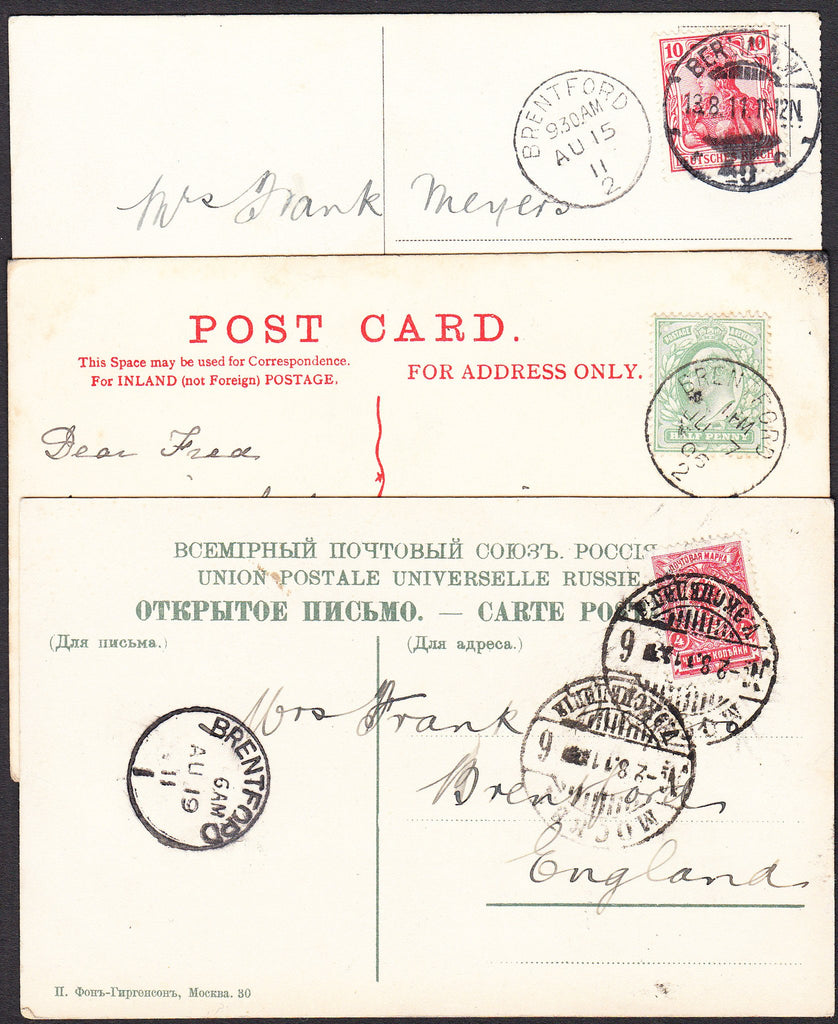 10 10
DEUTSCHES REICH
13.8.11.11-12N.
BRENTFORD
9.30AM
AU 15
11
2
Mrs Frank Meyers
POST CARD.
This Space may be used for Correspondence.
For INLAND (not Foreign) POSTAGE.
FOR ADDRESS ONLY.
POSTAGE
HALF PENNY
BRENTFORD
JU 7
2
Dear Fred
ВСЕМІРНЫЙ ПОЧТОВЫЙ СОЮЗЪ. РОССІЯ
UNION POSTALE UNIVERSELLE RUSSIE.
ОТКРЫТОЕ ПИСЬМО. — CARTE POST
(Для письма.)
(Для адреса.)
ПОЧТОВАЯ МАРКА
КОПѢЙКИ
6
-2.8.11
6
МОСКВА
Mrs Frank
Brentford
England
BRENTFORD
6AM
AU 19
11
П. Фонъ-Гиргенсонъ, Москва. 30